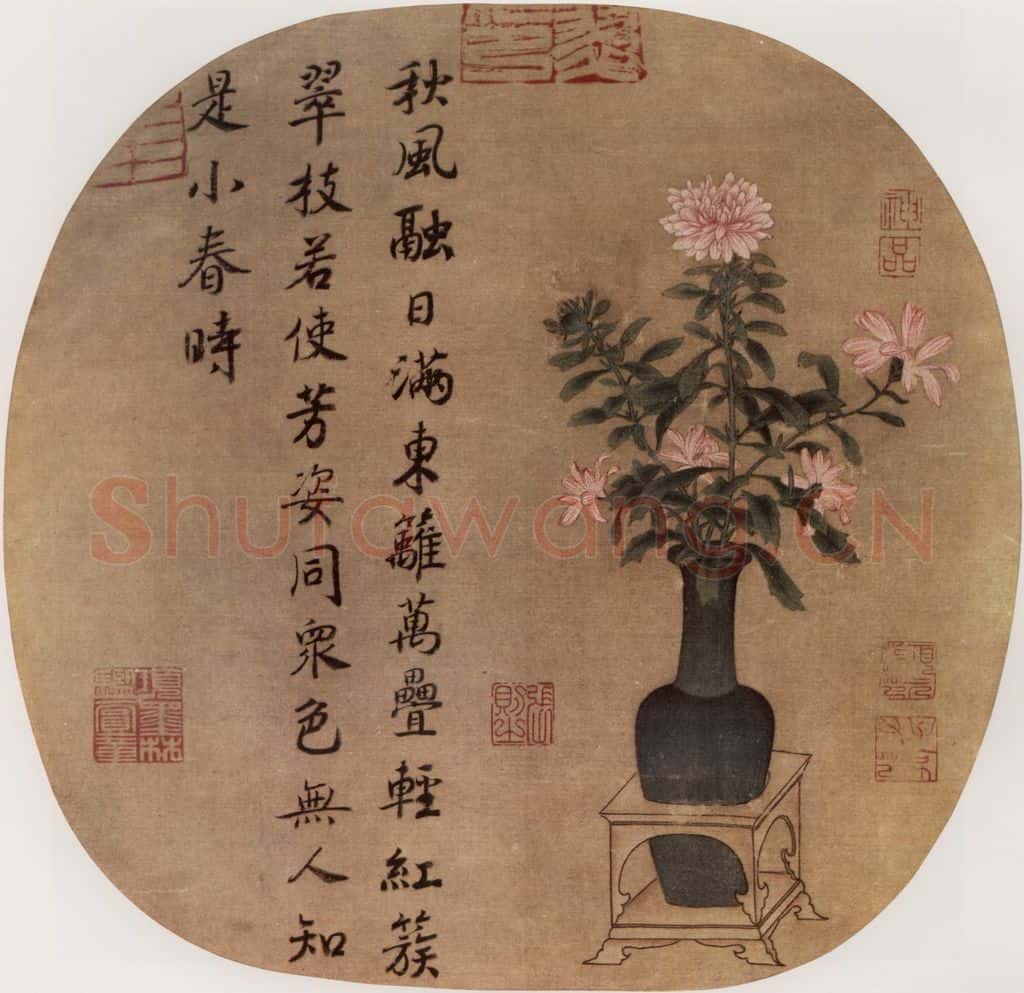 秋風融日滿東籬萬疊輕紅簇
翠枝若使芳姿同衆色無人知
是小春時
Shufawang.CN
神品
張則之